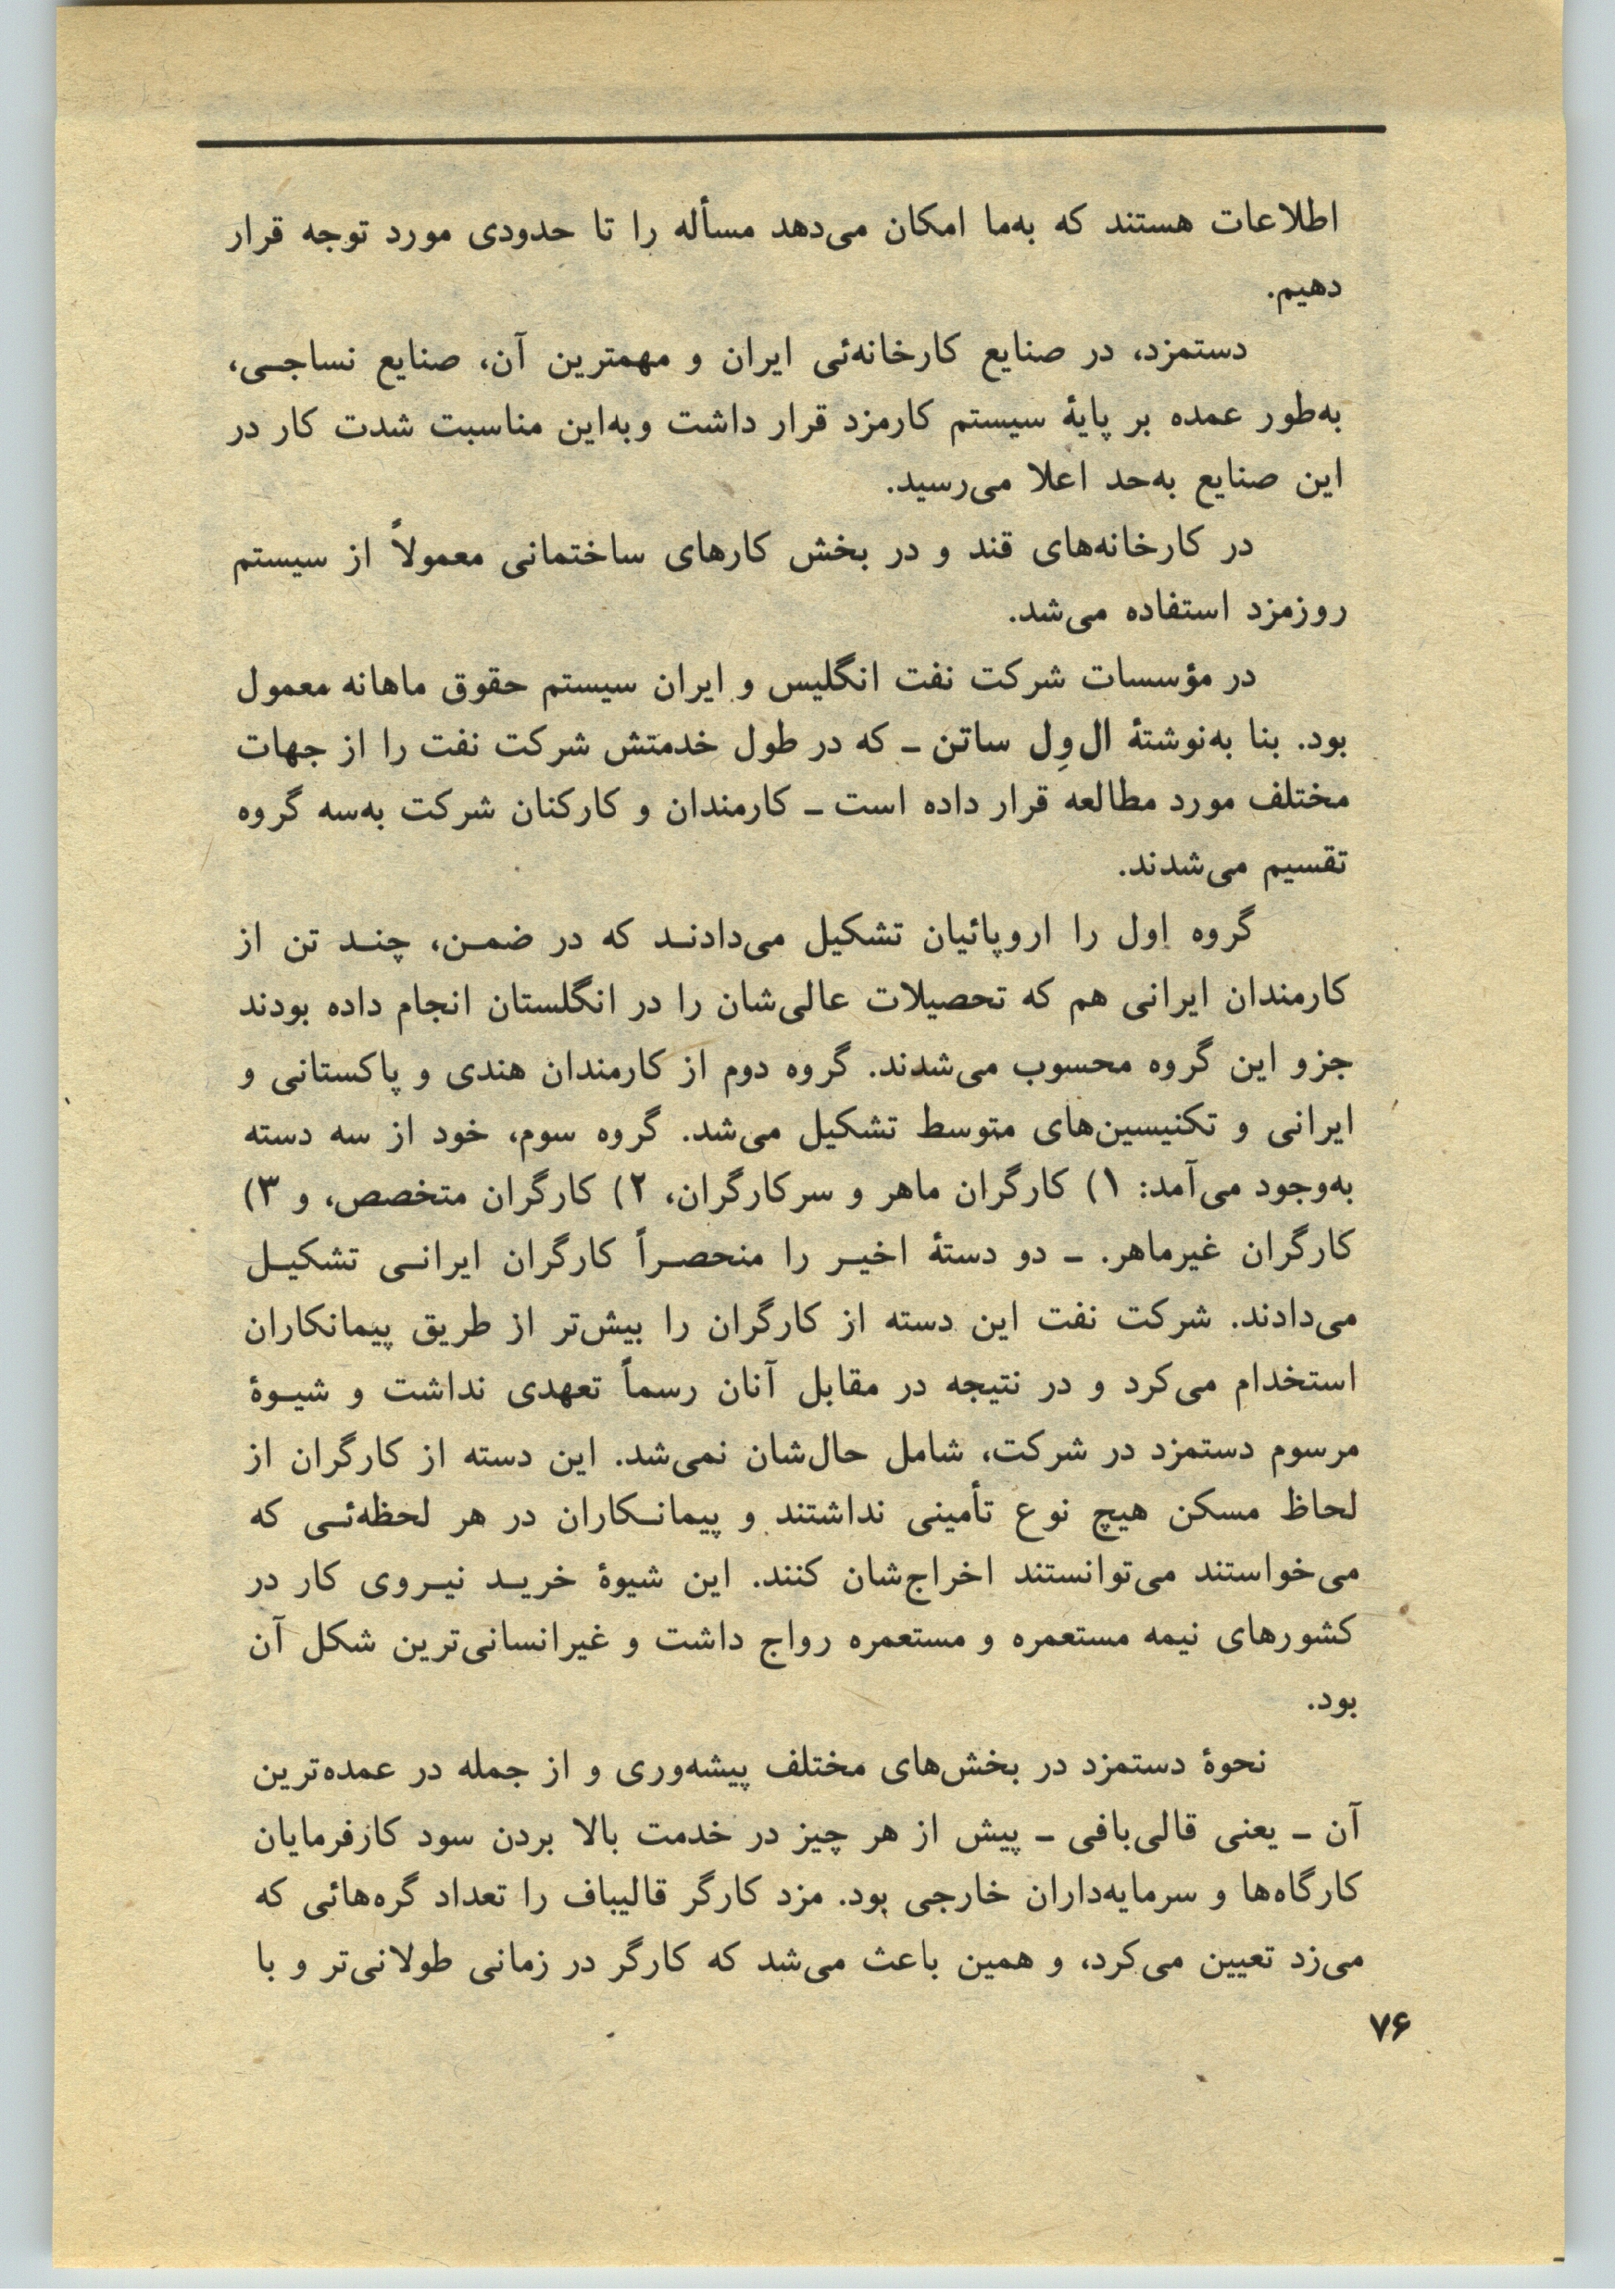 اطلاعات هستند که به‌ما امکان می‌دهد مسأله را تا حدودی مورد توجه قرار
دهیم.
دستمزد، در صنایع کارخانه‌ئی ایران و مهمترین آن، صنایع نساجی،
به‌طور عمده بر پایهٔ سیستم کارمزد قرار داشت وبه‌این مناسبت شدت کار در
این صنایع به‌حد اعلا می‌رسید.
در کارخانه‌های قند و در بخش کارهای ساختمانی معمولاً از سیستم
روزمزد استفاده می‌شد.
در مؤسسات شرکت نفت انگلیس و ایران سیستم حقوق ماهانه معمول
بود. بنا به‌نوشتهٔ ال وِل ساتن ـ که در طول خدمتش شرکت نفت را از جهات
مختلف مورد مطالعه قرار داده است ـ کارمندان و کارکنان شرکت به‌سه گروه
تقسیم می‌شدند.
گروه اول را اروپائیان تشکیل می‌دادند که در ضمن، چند تن از
کارمندان ایرانی هم که تحصیلات عالی‌شان را در انگلستان انجام داده بودند
جزو این گروه محسوب می‌شدند. گروه دوم از کارمندان هندی و پاکستانی و
ایرانی و تکنیسین‌های متوسط تشکیل می‌شد. گروه سوم، خود از سه دسته
به‌وجود می‌آمد: ۱) کارگران ماهر و سرکارگران، ۲) کارگران متخصص، و ۳)
کارگران غیرماهر. ـ دو دستهٔ اخیر را منحصراً کارگران ایرانی تشکیل
می‌دادند. شرکت نفت این دسته از کارگران را بیش‌تر از طریق پیمانکاران
استخدام می‌کرد و در نتیجه در مقابل آنان رسماً تعهدی نداشت و شیوهٔ
مرسوم دستمزد در شرکت، شامل حال‌شان نمی‌شد. این دسته از کارگران از
لحاظ مسکن هیچ نوع تأمینی نداشتند و پیمانکاران در هر لحظه‌ئی که
می‌خواستند می‌توانستند اخراج‌شان کنند. این شیوهٔ خرید نیروی کار در
کشورهای نیمه مستعمره و مستعمره رواج داشت و غیرانسانی‌ترین شکل آن
بود.
نحوهٔ دستمزد در بخش‌های مختلف پیشه‌وری و از جمله در عمده‌ترین
آن ـ یعنی قالی‌بافی ـ پیش از هر چیز در خدمت بالا بردن سود کارفرمایان
کارگاه‌ها و سرمایه‌داران خارجی بود. مزد کارگر قالیباف را تعداد گره‌هائی که
می‌زد تعیین می‌کرد، و همین باعث می‌شد که کارگر در زمانی طولانی‌تر و با
۷۶